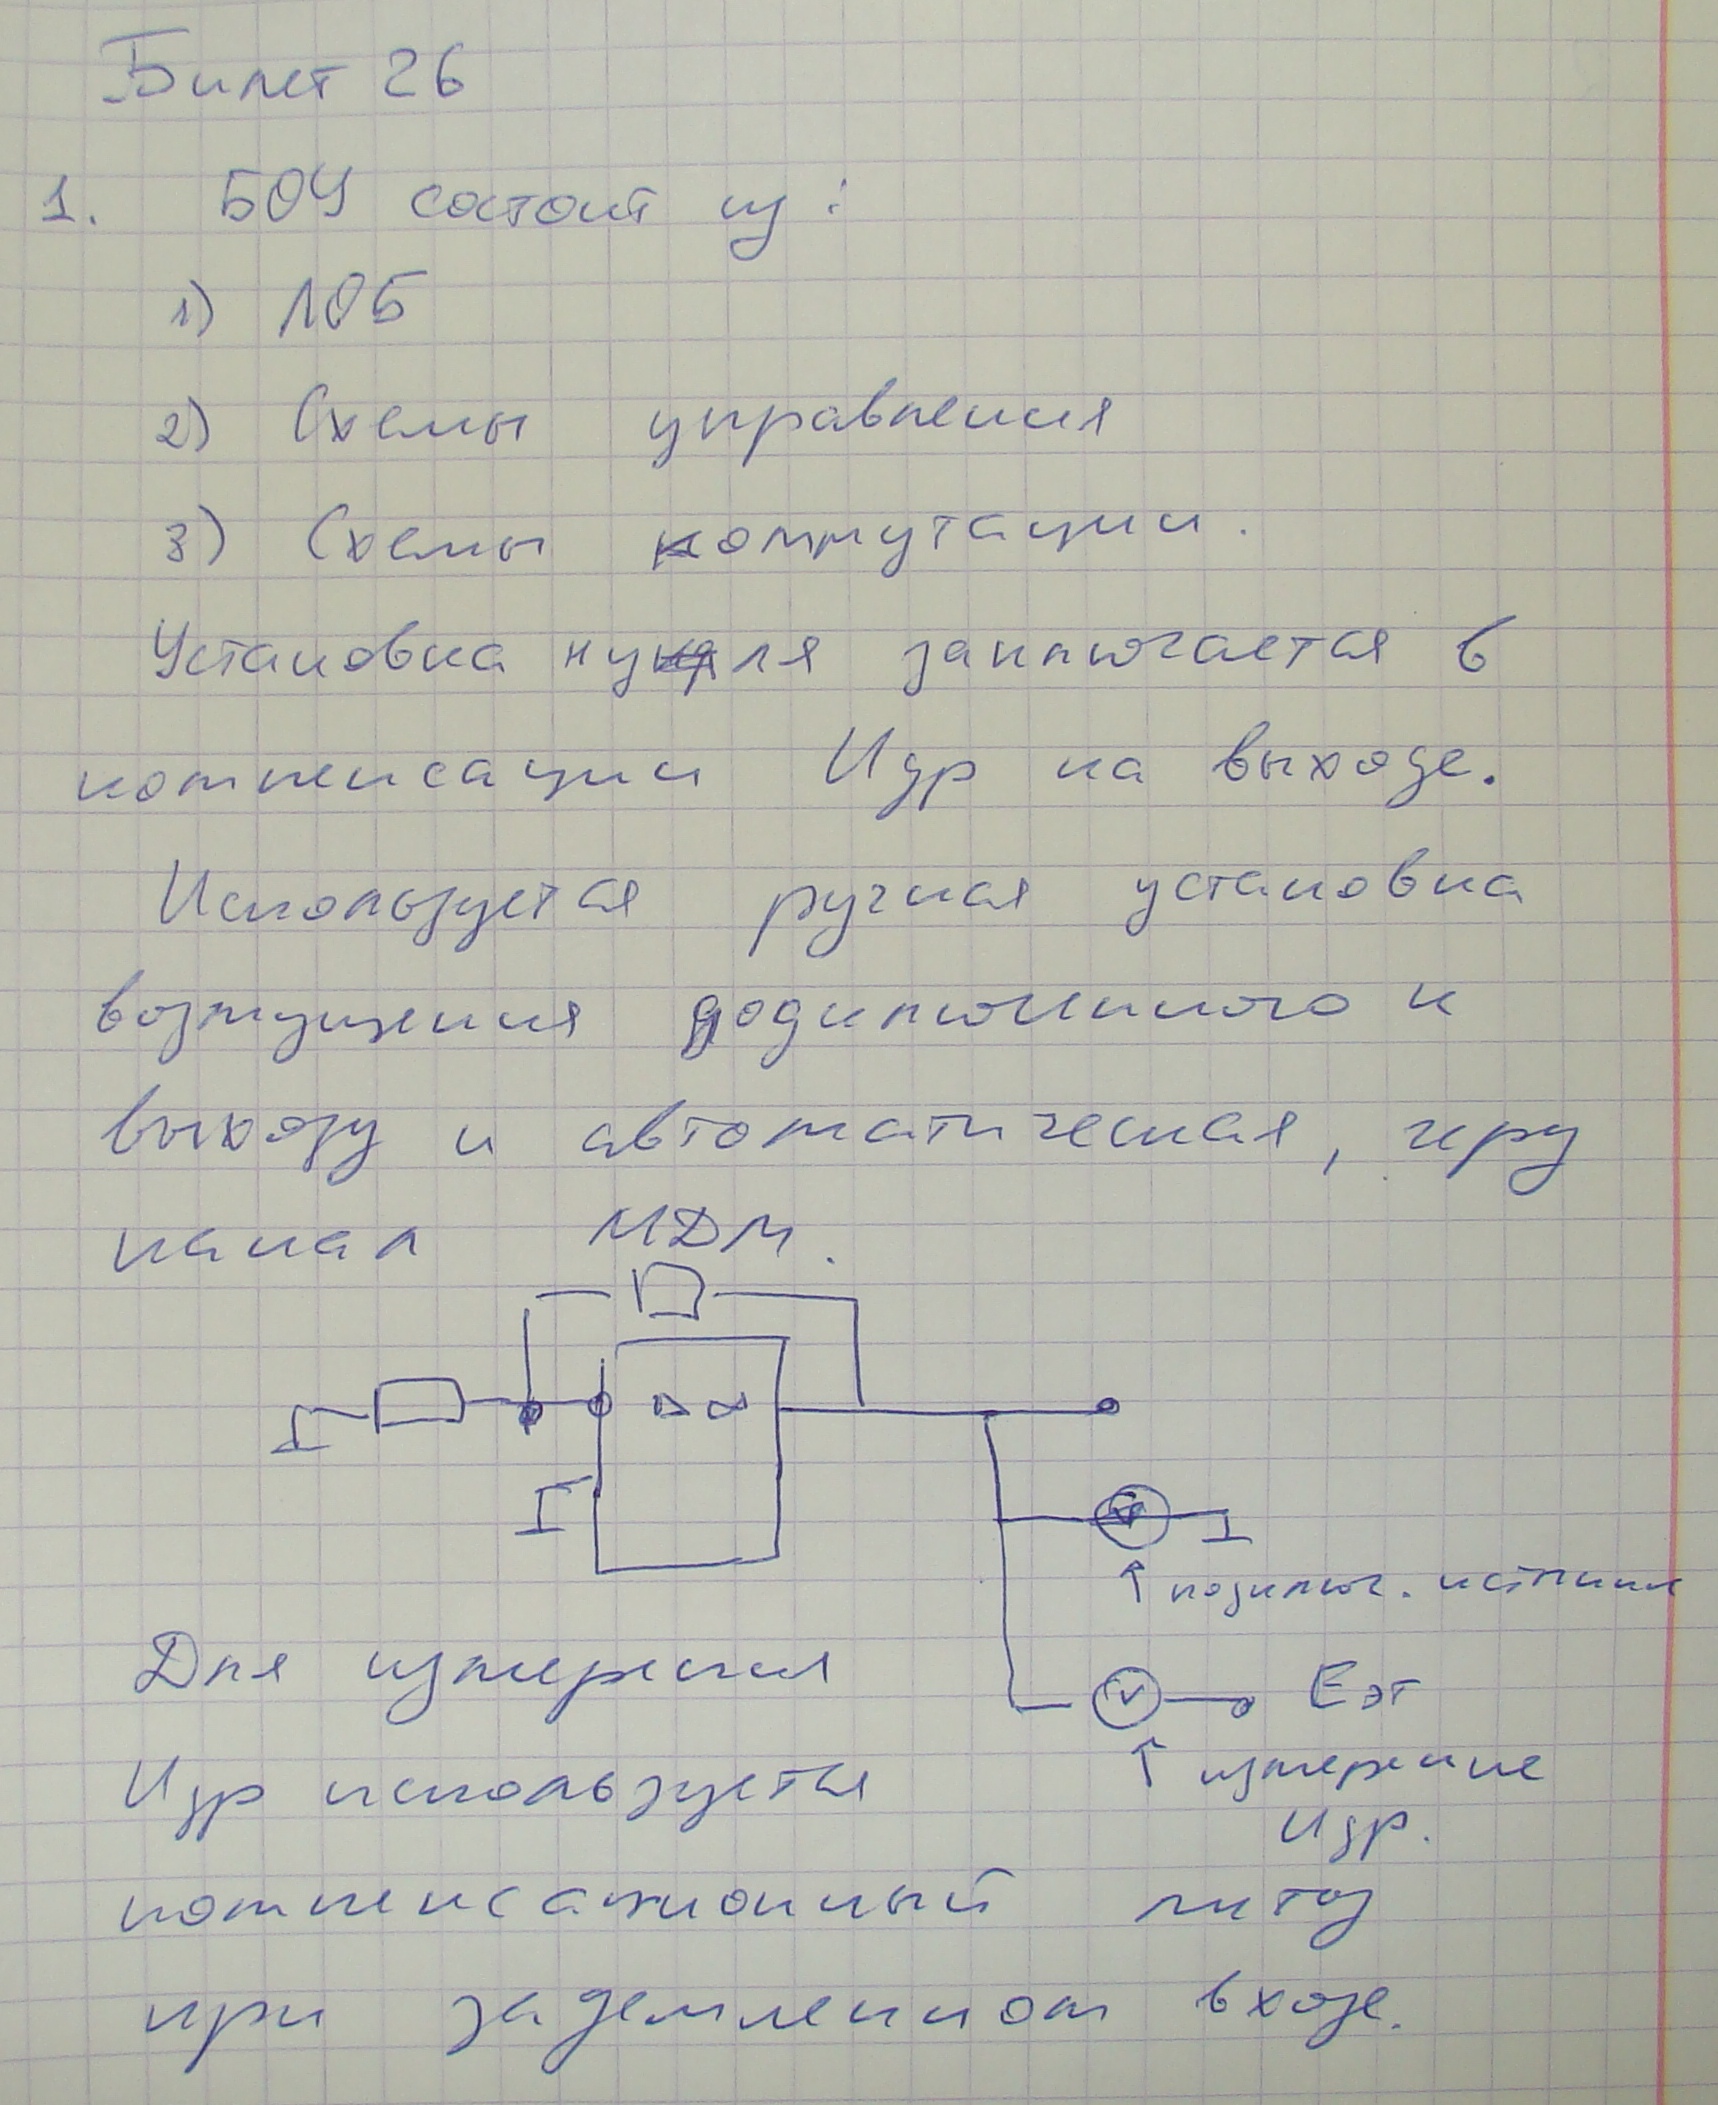 Билет 26
1. БОУ состоит из:
1) ЛОБ
2) Схемы управления
3) Схемы коммутации.
Установка нуля заключается в
компенсации Uдр на выходе.
Используется ручная установка
возмущения подключенного к
выходу и автоматическая, через
канал МДМ.
▷ ∞
V
↑ подключ. источник
V Eэт
↑ измерение
Uдр.
Для измерения
Uдр используется
компенсационный метод
при заземленном входе.